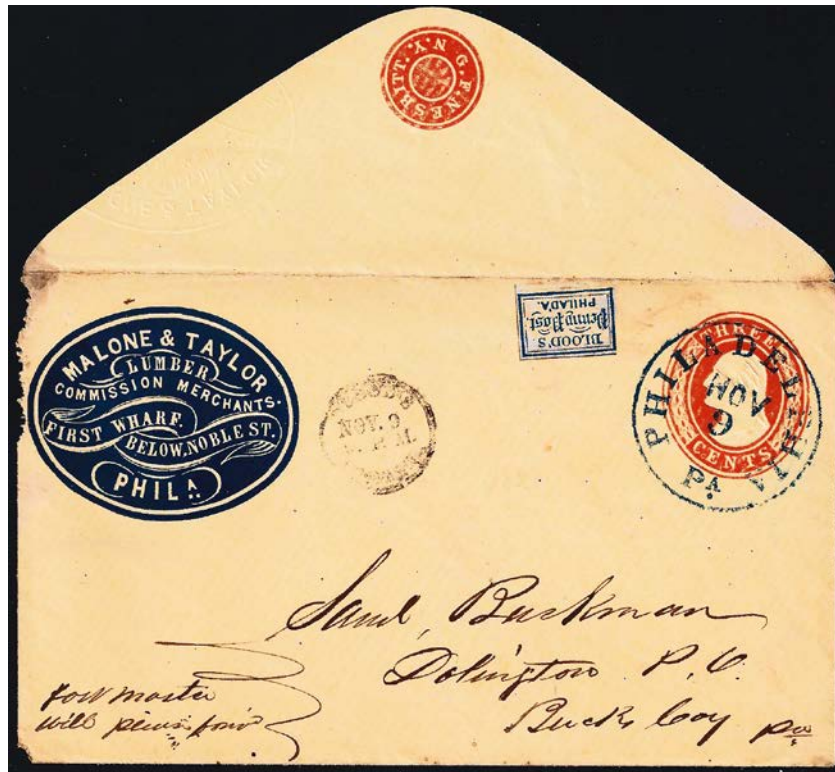 G. F. NESBITT. N.Y.
TAYLOR
MALONE & TAYLOR
LUMBER
COMMISSION MERCHANTS.
FIRST WHARF.
BELOW, NOBLE ST.
PHILA
BLOOD'S
Penny Post.
PHILAD'A.
NOV. 9
P.M.
THREE
CENTS
PHILADELPHIA
NOV
9
PA
Saml, Buckman
Dolington P.O.
Bucks Coy pa
will please forw